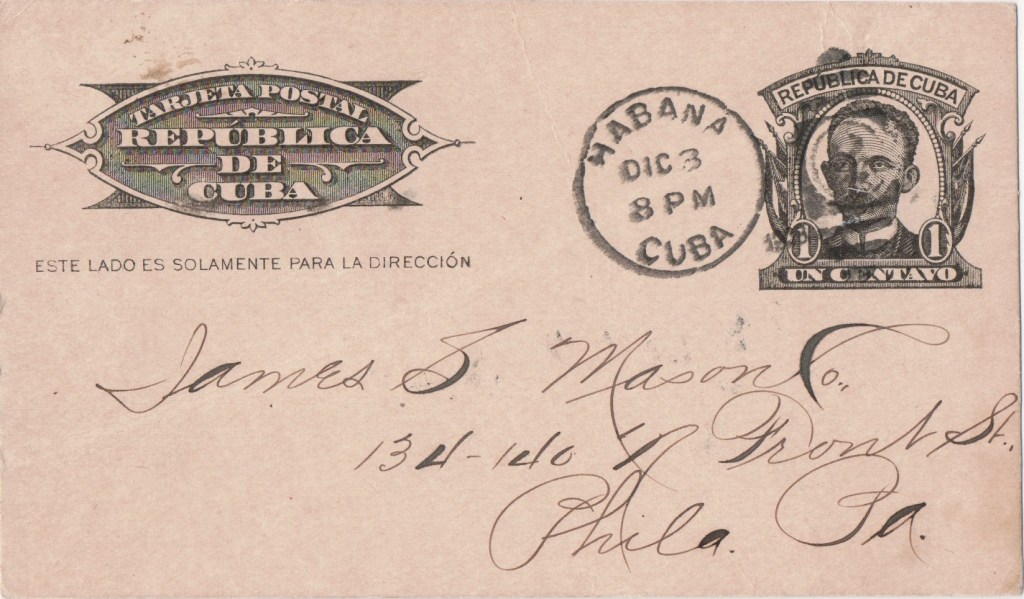 TARJETA POSTAL
REPÚBLICA
DE
CUBA
ESTE LADO ES SOLAMENTE PARA LA DIRECCIÓN
HABANA
DIC 3
8 PM
CUBA
REPUBLICA DE CUBA
1 1
UN CENTAVO
James S. Mason Co.,
134-140 N Front St.,
Phila. Pa.